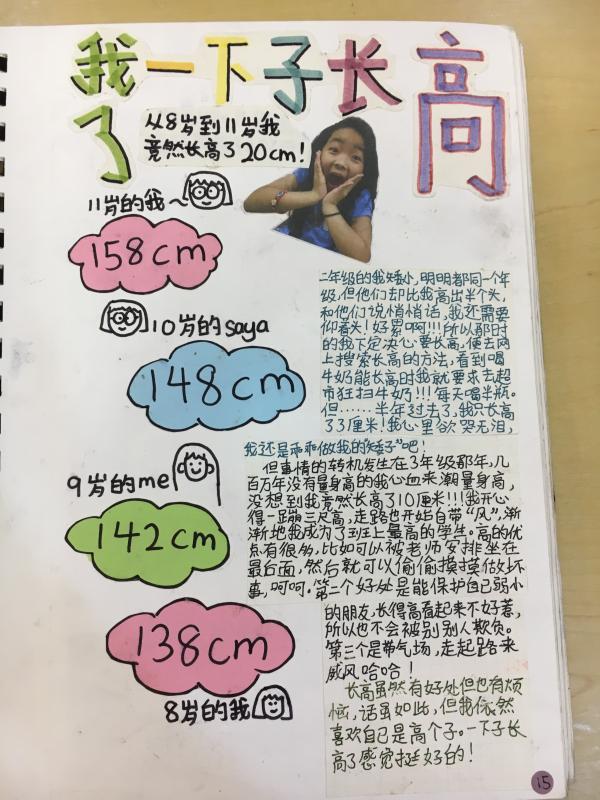 我一下子长高
了
从8岁到11岁我
竟然长高了20cm!
11岁的我~
158cm
10岁的saya
148cm
9岁的me
142cm
138cm
8岁的我
二年级的我矮小,明明都同一个年
级,但他们却比我高出半个头,
和他们说悄悄话,我还需要
仰着头!好累啊!!!所以那时
的我下定决心要长高,便去网
上搜索长高的方法,看到喝
牛奶能长高时我就要求去超
市狂扫牛奶!!!每天喝半瓶。
但……半年过去了,我只长高
了3厘米!我心里欲哭无泪,
我还是乖乖做我的“矮子”吧!
但事情的转机发生在3年级那年,几
百万年没有量身高的我心血来潮量身高,
没想到我竟然长高了10厘米!!!我开心
得一蹦三尺高,走路也开始自带“风”,渐
渐地我成为了班上最高的学生。高的优
点有很多,比如可以被老师安排坐在
最后面,然后就可以偷偷摸摸做坏
事,呵呵。第二个好处是能保护自己弱小
的朋友,长得高看起来不好惹,
所以也不会被别别人欺负。
第三个是带气场,走起路来
威风哈哈!
长高虽然有好处但也有烦
恼,话虽如此,但我依然
喜欢自己是高个子。一下子长
高了感觉挺好的!
15